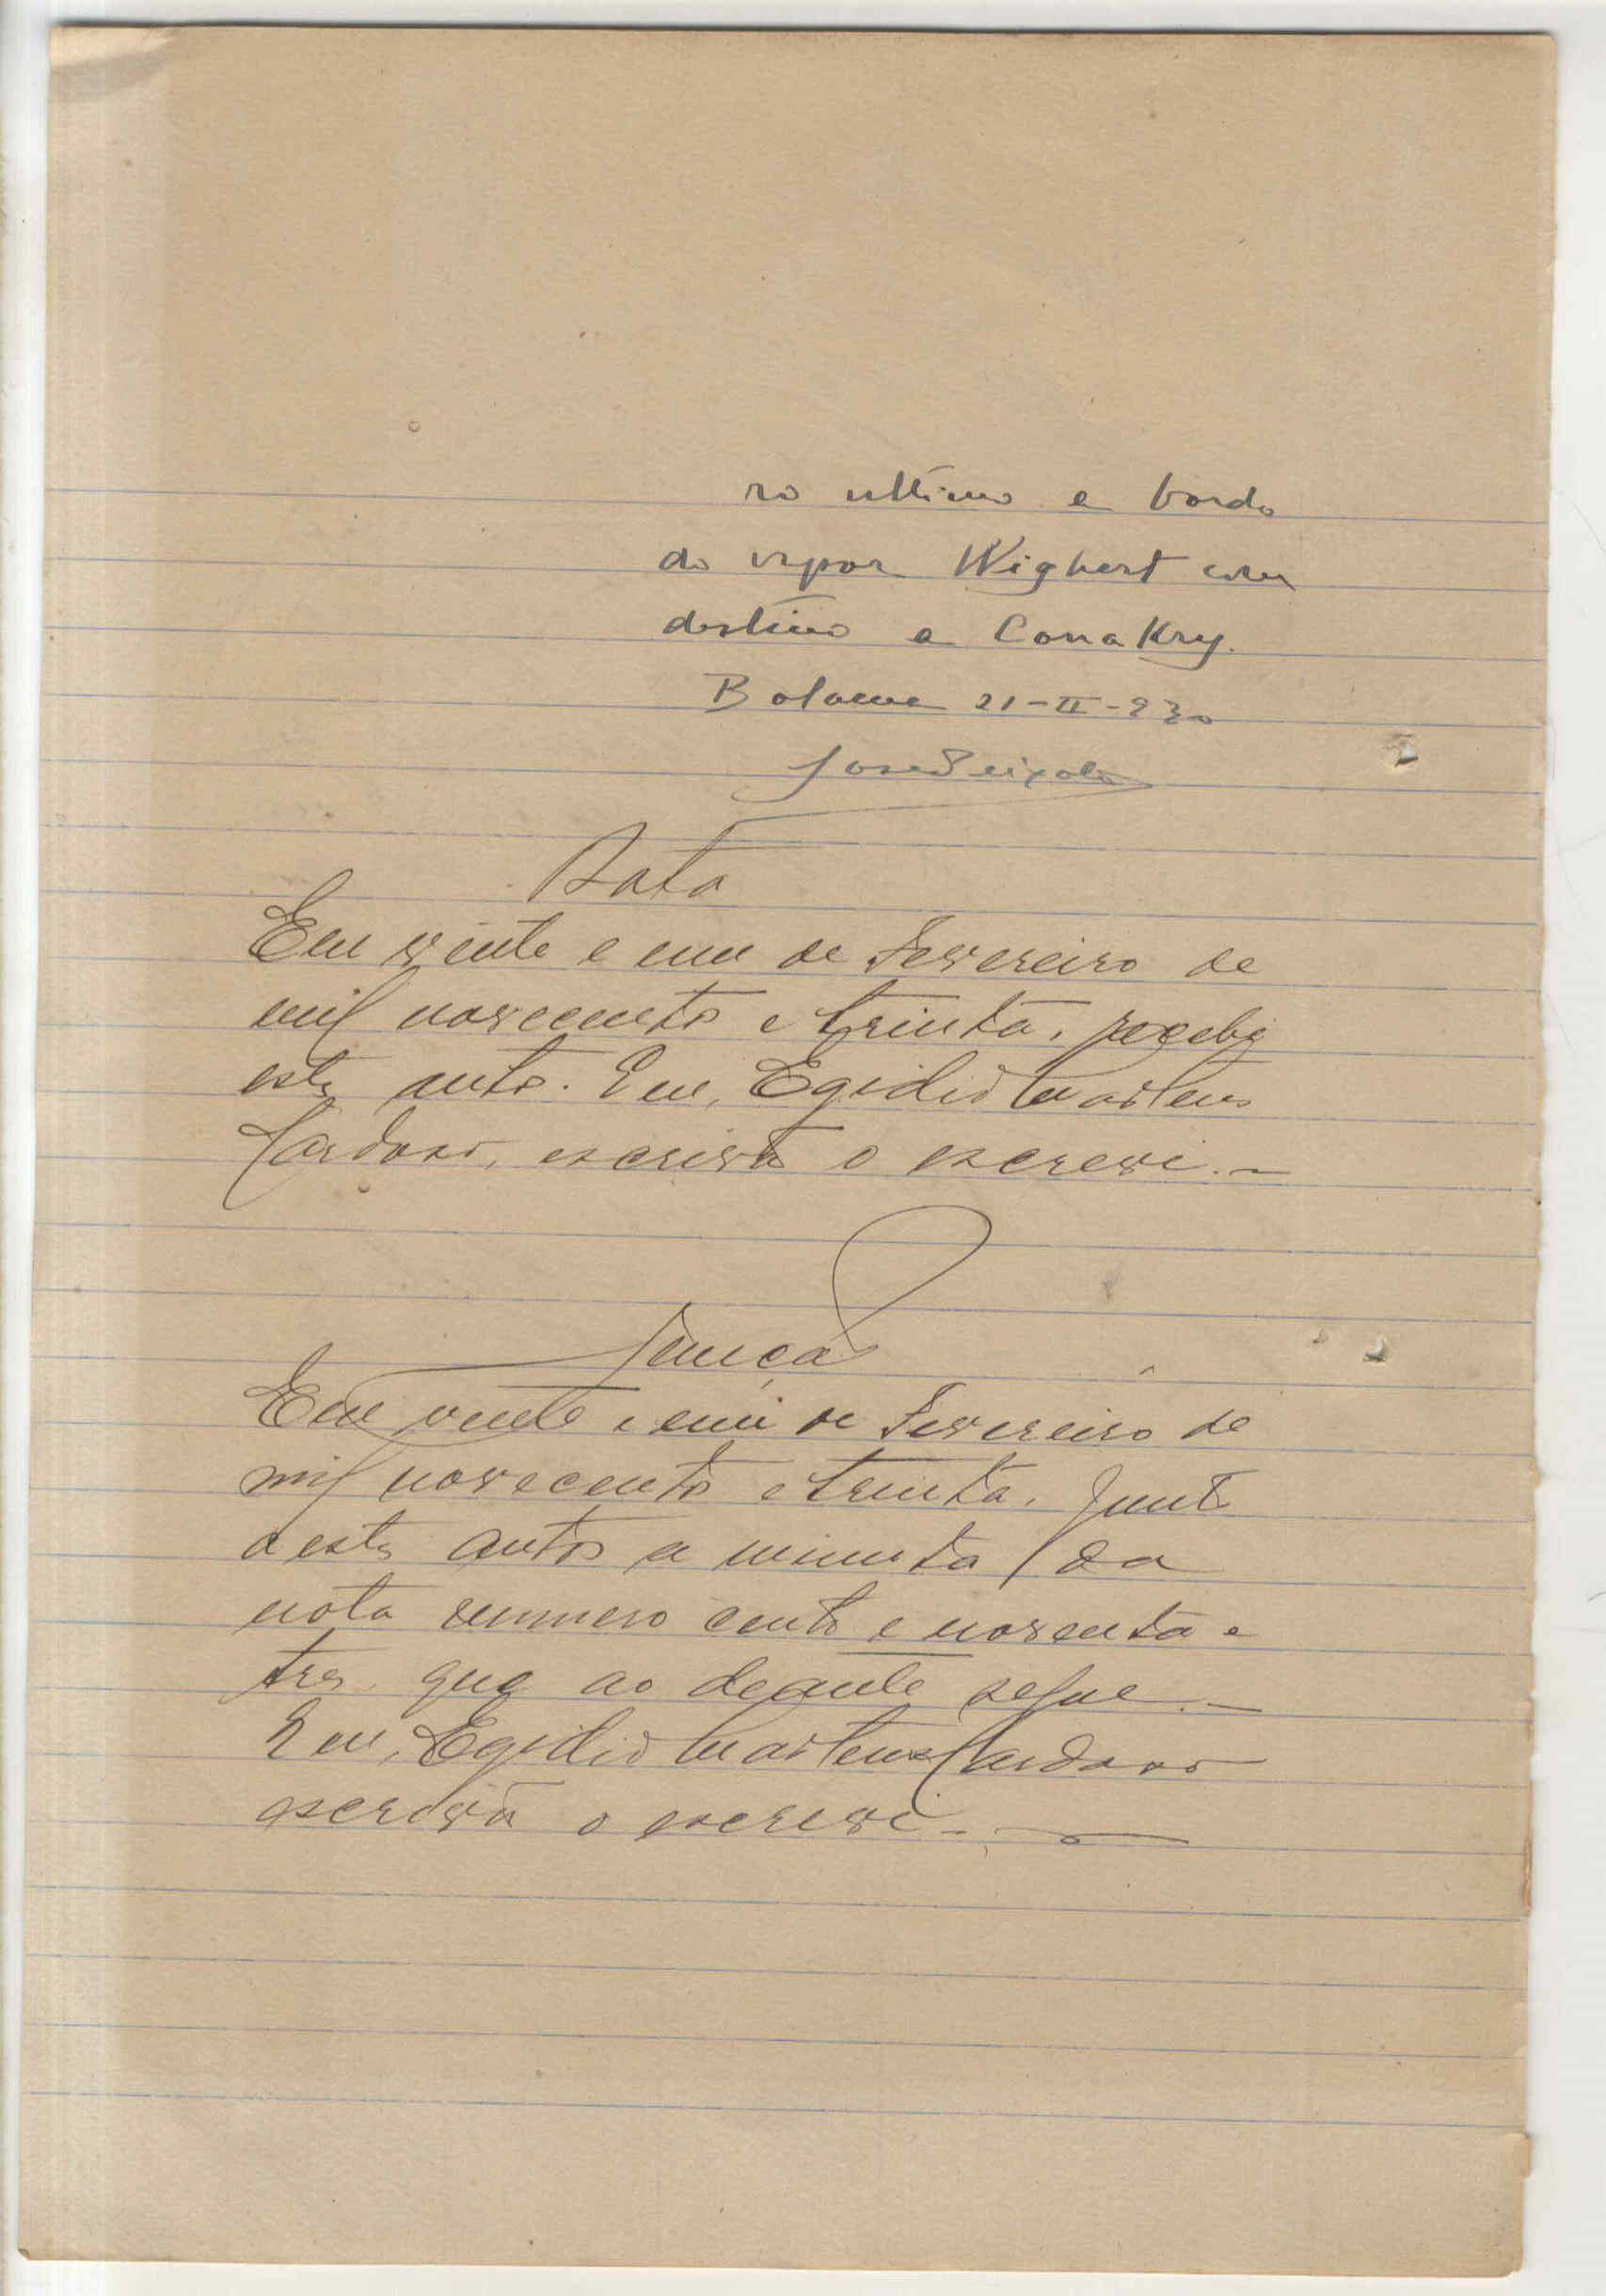 ro ultimo a bordo
do vapor Wighert com
destino a Conakry.
Bolama 21-II-930
José Peixoto
Data
Em vinte e um de Fevereiro de
mil novecentos e trinta, recebi
estes autos. Eu, Egidio Martins
Cardoso, escrivão o escrevi.-
Junção
Em vinte e um de Fevereiro de
mil novecentos e trinta, junto
a estes autos a minuta da
nota numero cento e noventa e
tres que ao deante segue.-
Eu, Egidio Martins Cardoso
escrivão o escrevi.-